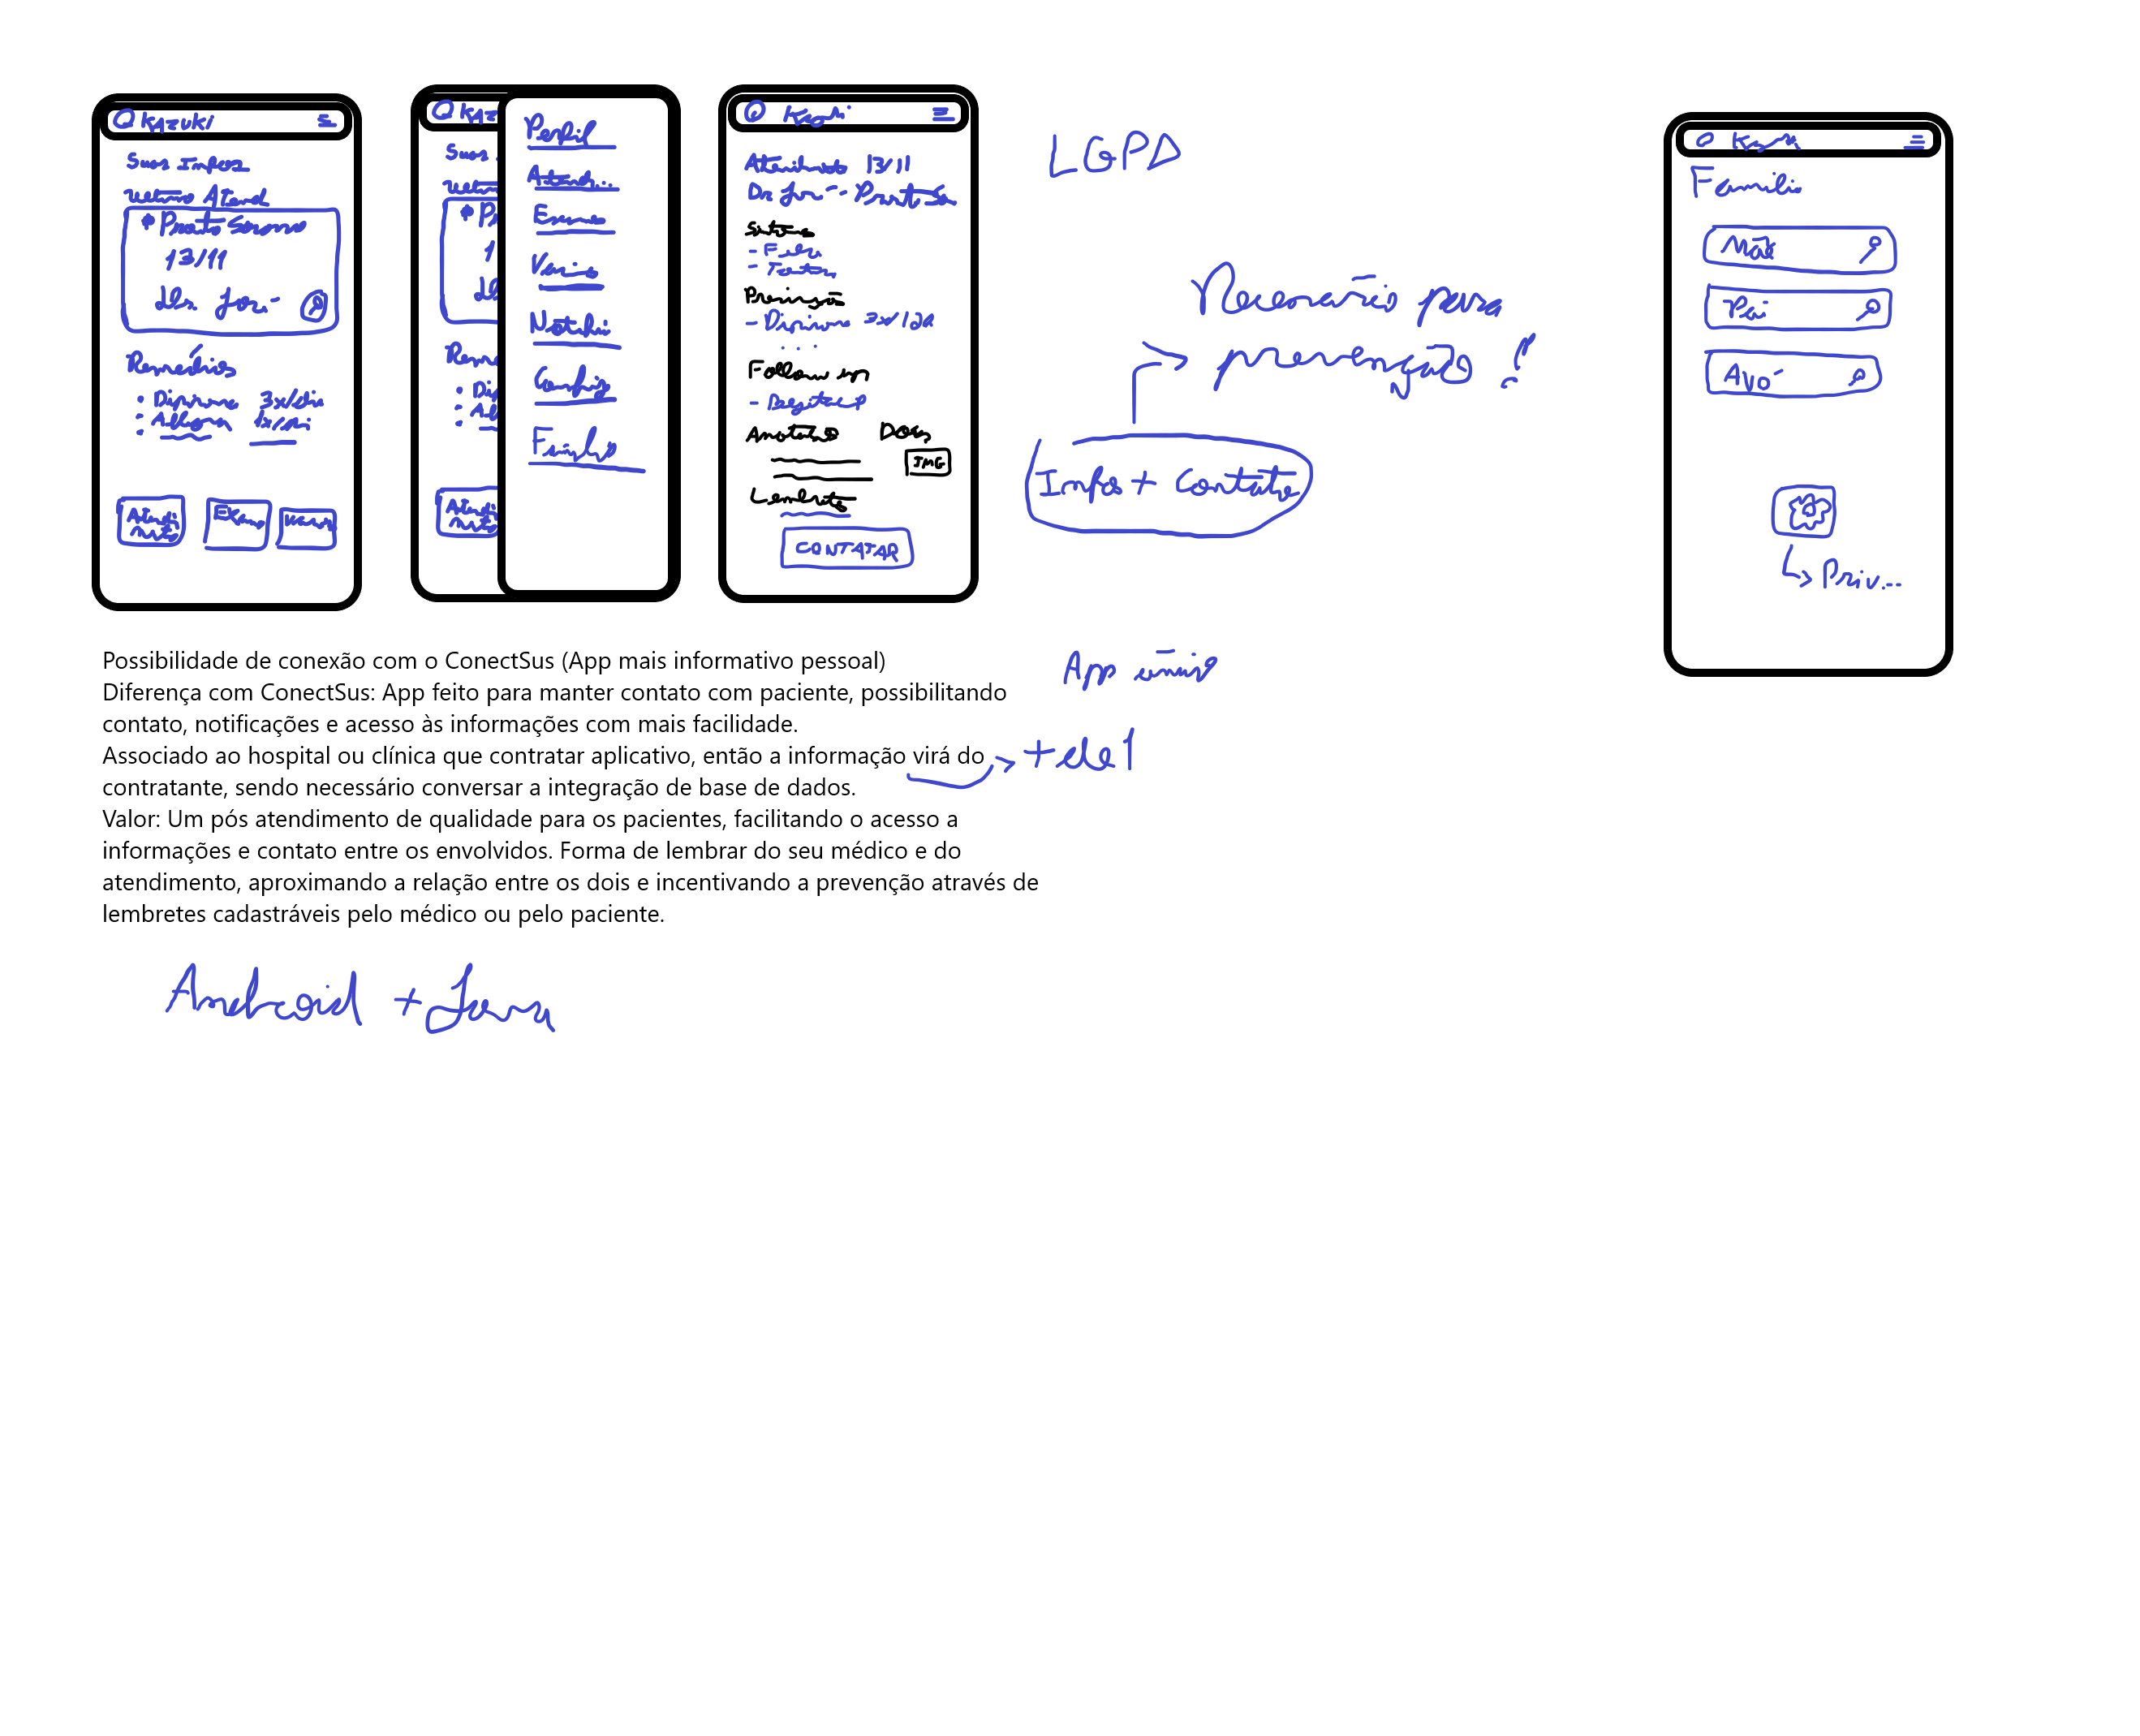 KAzuki
Suas Infos
Último Atend
Pronto Socorro
13/11
Dr. Jor-
Remédios
Dipirona 3x/dia
Exame
Perfil
Atend...
Exame
Notifi
Config
Família
Atendimento 13/11
Dr. Jor-- Pronto So
Sintomas
- Febre
Dipirona
Follow up
Anotações Docs
IMG
Lembrete
CONTATAR
LGPD
Necessário para
prevenção!
Infos + Contato
Família
Mãe
Pai
Avó
Priv...
Possibilidade de conexão com o ConectSus (App mais informativo pessoal)
Diferença com ConectSus: App feito para manter contato com paciente, possibilitando
contato, notificações e acesso às informações com mais facilidade.
Associado ao hospital ou clínica que contratar aplicativo, então a informação virá do
contratante, sendo necessário conversar a integração de base de dados.
Valor: Um pós atendimento de qualidade para os pacientes, facilitando o acesso a
informações e contato entre os envolvidos. Forma de lembrar do seu médico e do
atendimento, aproximando a relação entre os dois e incentivando a prevenção através de
lembretes cadastráveis pelo médico ou pelo paciente.
App único
+ de 1
Android + Java